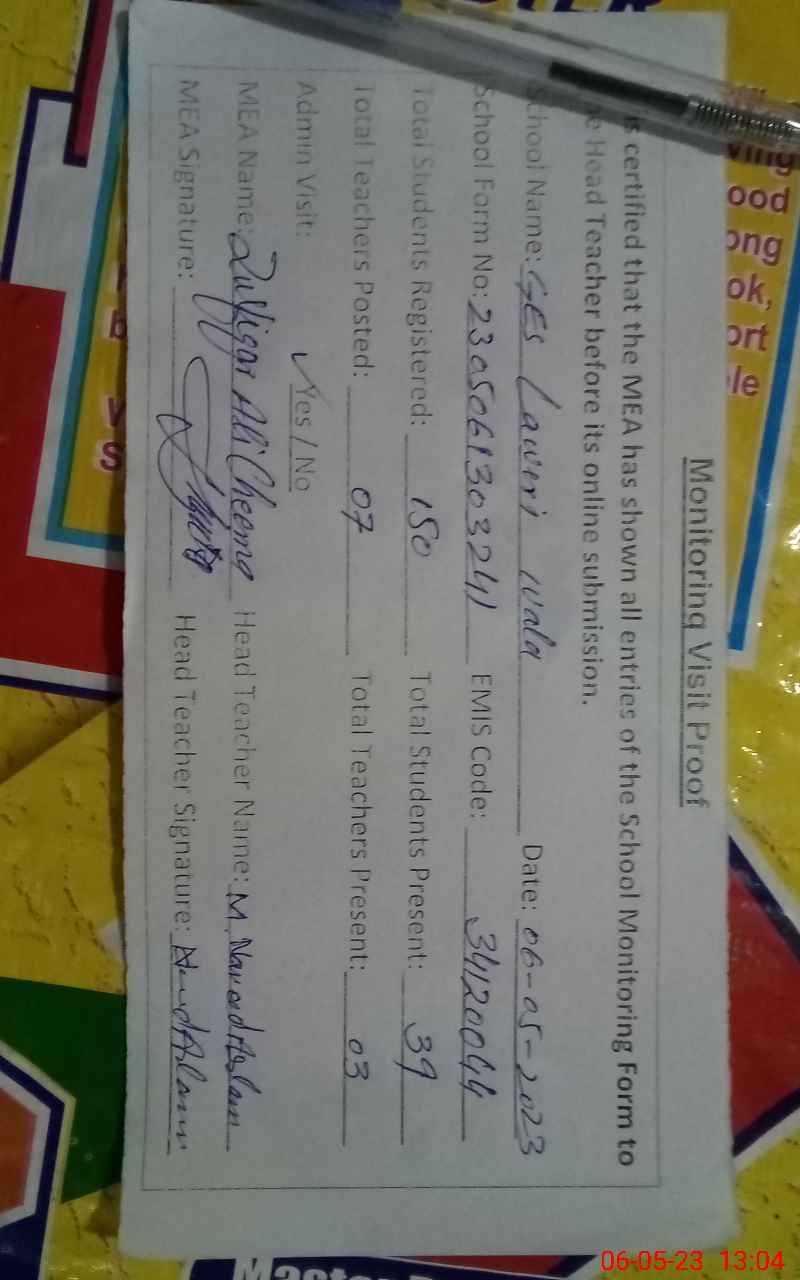 Monitoring Visit Proof
is certified that the MEA has shown all entries of the School Monitoring Form to
Head Teacher before its online submission.
School Name: GES Laweri Wala Date: 06-05-2023
School Form No: 2305061303241 EMIS Code: 34120044
Total Students Registered: 150 Total Students Present: 39
Total Teachers Posted: 07 Total Teachers Present: 03
Admin Visit: ✓Yes / No
MEA Name: Zulfiqar Ali Cheema Head Teacher Name: M. Naveed Aslam
MEA Signature: Head Teacher Signature:
ood
ong
ok,
ort
le
06-05-23 13:04